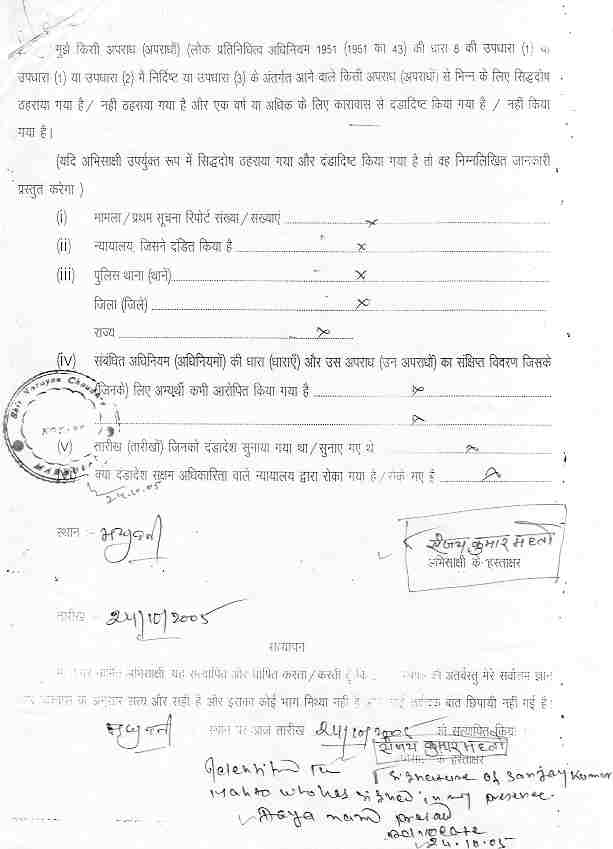 मुझे किसी अपराध (अपराधों) (लोक प्रतिनिधित्व अधिनियम 1951 (1951 का 43) की धारा 8 की उपधारा (1) या
उपधारा (1) या उपधारा (2) में निर्दिष्ट या उपधारा (3) के अंतर्गत आने वाले किसी अपराध (अपराधों) से भिन्न के लिए सिद्धदोष
ठहराया गया है / नहीं ठहराया गया है और एक वर्ष या अधिक के लिए कारावास से दंडादिष्ट किया गया है / नहीं किया
गया है।
(यदि अभिसाक्षी उपर्युक्त रूप में सिद्धदोष ठहराया गया और दंडादिष्ट किया गया है तो वह निम्नलिखित जानकारी
प्रस्तुत करेगा )
(i) मामला / प्रथम सूचना रिपोर्ट संख्या / संख्याएं x
(ii) न्यायालय, जिसने दंडित किया है x
(iii) पुलिस थाना (थाने) x
जिला (जिले) x
राज्य x
(iv) संबंधित अधिनियम (अधिनियमों) की धारा (धाराएँ) और उस अपराध (उन अपराधों) का संक्षिप्त विवरण जिसके
(जिनके) लिए अभ्यर्थी कभी आरोपित किया गया है x
(v) तारीख (तारीखों) जिनको दंडादेश सुनाया गया था / सुनाए गए थे
क्या दंडादेश सक्षम अधिकारिता वाले न्यायालय द्वारा रोका गया है / रोके गए हैं
24.10.05
स्थान :- मधुबनी
संजय कुमार महतो
अभिसाक्षी के हस्ताक्षर
तारीख :- 24/10/2005
सत्यापन
अभिसाक्षी, यह सत्यापित और घोषित करता / करती हूँ कि की अंतर्वस्तु मेरे सर्वोत्तम ज्ञान
के अनुसार सत्य और सही है और इसका कोई भाग मिथ्या नहीं है बात छिपायी नहीं गई है।
मधुबनी स्थान पर आज तारीख 24/10/2005 को सत्यापित किया
संजय कुमार महतो
के हस्ताक्षर
signature of Sanjay Kumar
Mahto who has signed in my presence.
Advocate
24.10.05